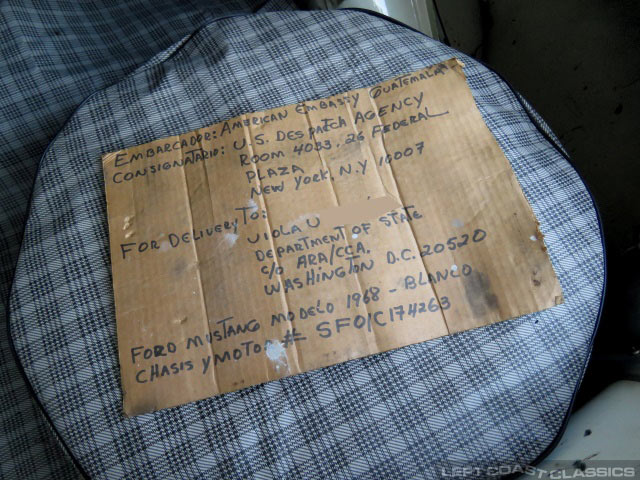 EMBARCADOR: AMERICAN EMBASSY GUATEMALA
CONSIGNATARIO: U.S. DESPATCH AGENCY
ROOM 4033, 26 FEDERAL
PLAZA
NEW YORK, N.Y 10007
FOR DELIVERY TO:
VIOLA U
DEPARTMENT OF STATE
C/O ARA/CCA.
WASHINGTON D.C. 20520
FORD MUSTANG MODELO 1968 - BLANCO
CHASIS Y MOTOR # SF01C174263
LEFT COAST CLASSICS